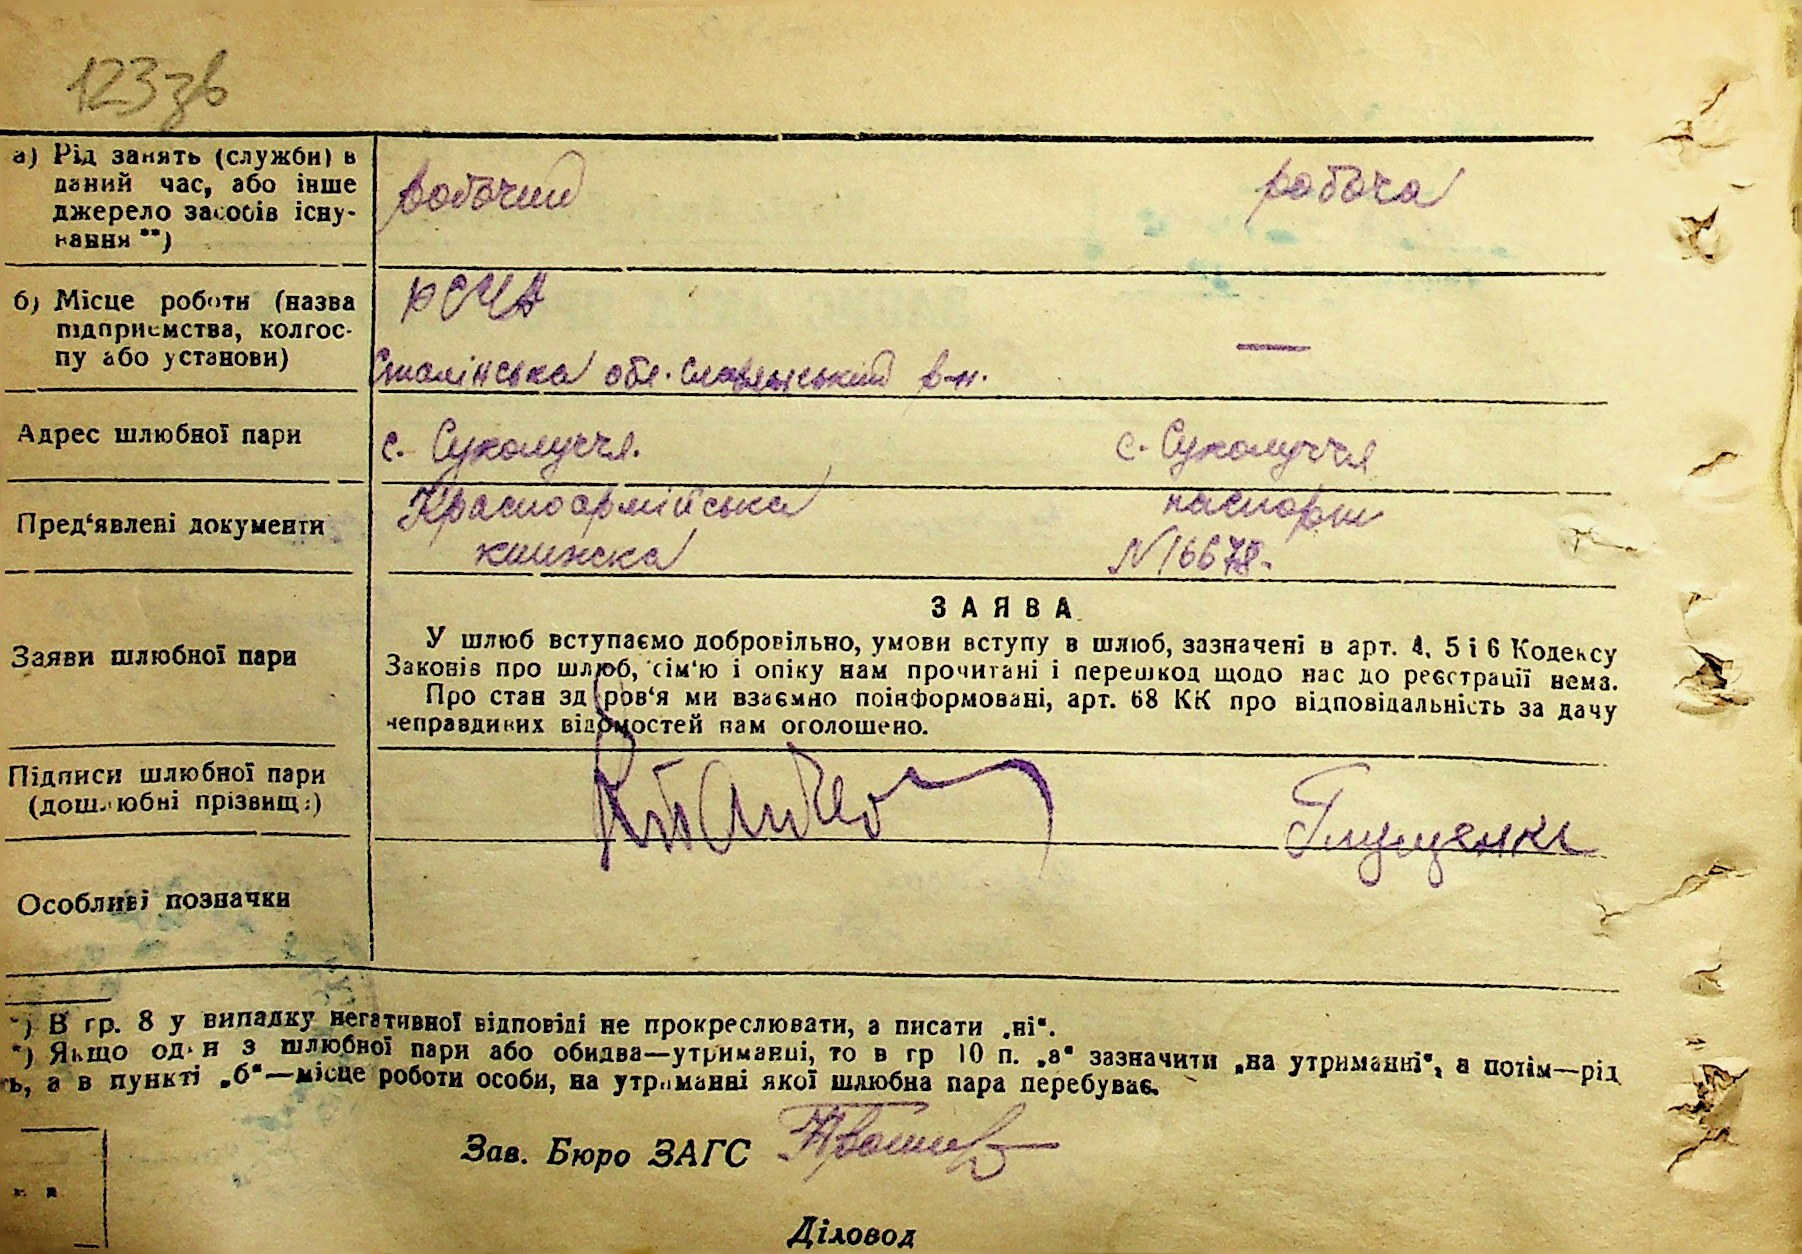 123зв
а) Рід занять (служби) в
даний час, або інше
джерело засобів існу-
вання **)
робочий робоча
б) Місце роботи (назва
підприємства, колгос-
пу або установи)
РСЧА
Сталінська обл. Славянський р-н. —
Адрес шлюбної пари
с. Сухолуччя. с. Сухолуччя
Пред‘явлені документи
Красноармійська паспорт
книжка N 16678.
Заяви шлюбної пари
ЗАЯВА
У шлюб вступаємо добровільно, умови вступу в шлюб, зазначені в арт. 4, 5 і 6 Кодексу
Законів про шлюб, сім‘ю і опіку нам прочитані і перешкод щодо нас до реєстрації нема.
Про стан здоров‘я ми взаємно поінформовані, арт. 68 КК про відповідальність за дачу
неправдивих відомостей нам оголошено.
Підписи шлюбної пари
(дошлюбні прізвища)
Глущенко
Особливі позначки
*) В гр. 8 у випадку негативної відповіді не прокреслювати, а писати „ні“.
*) Якщо один з шлюбної пари або обидва—утриманці, то в гр 10 п. „а“ зазначити „на утриманні“, а потім—рід
ть, а в пункті „б“—місце роботи особи, на утриманні якої шлюбна пара перебуває.
Зав. Бюро ЗАГС
Діловод